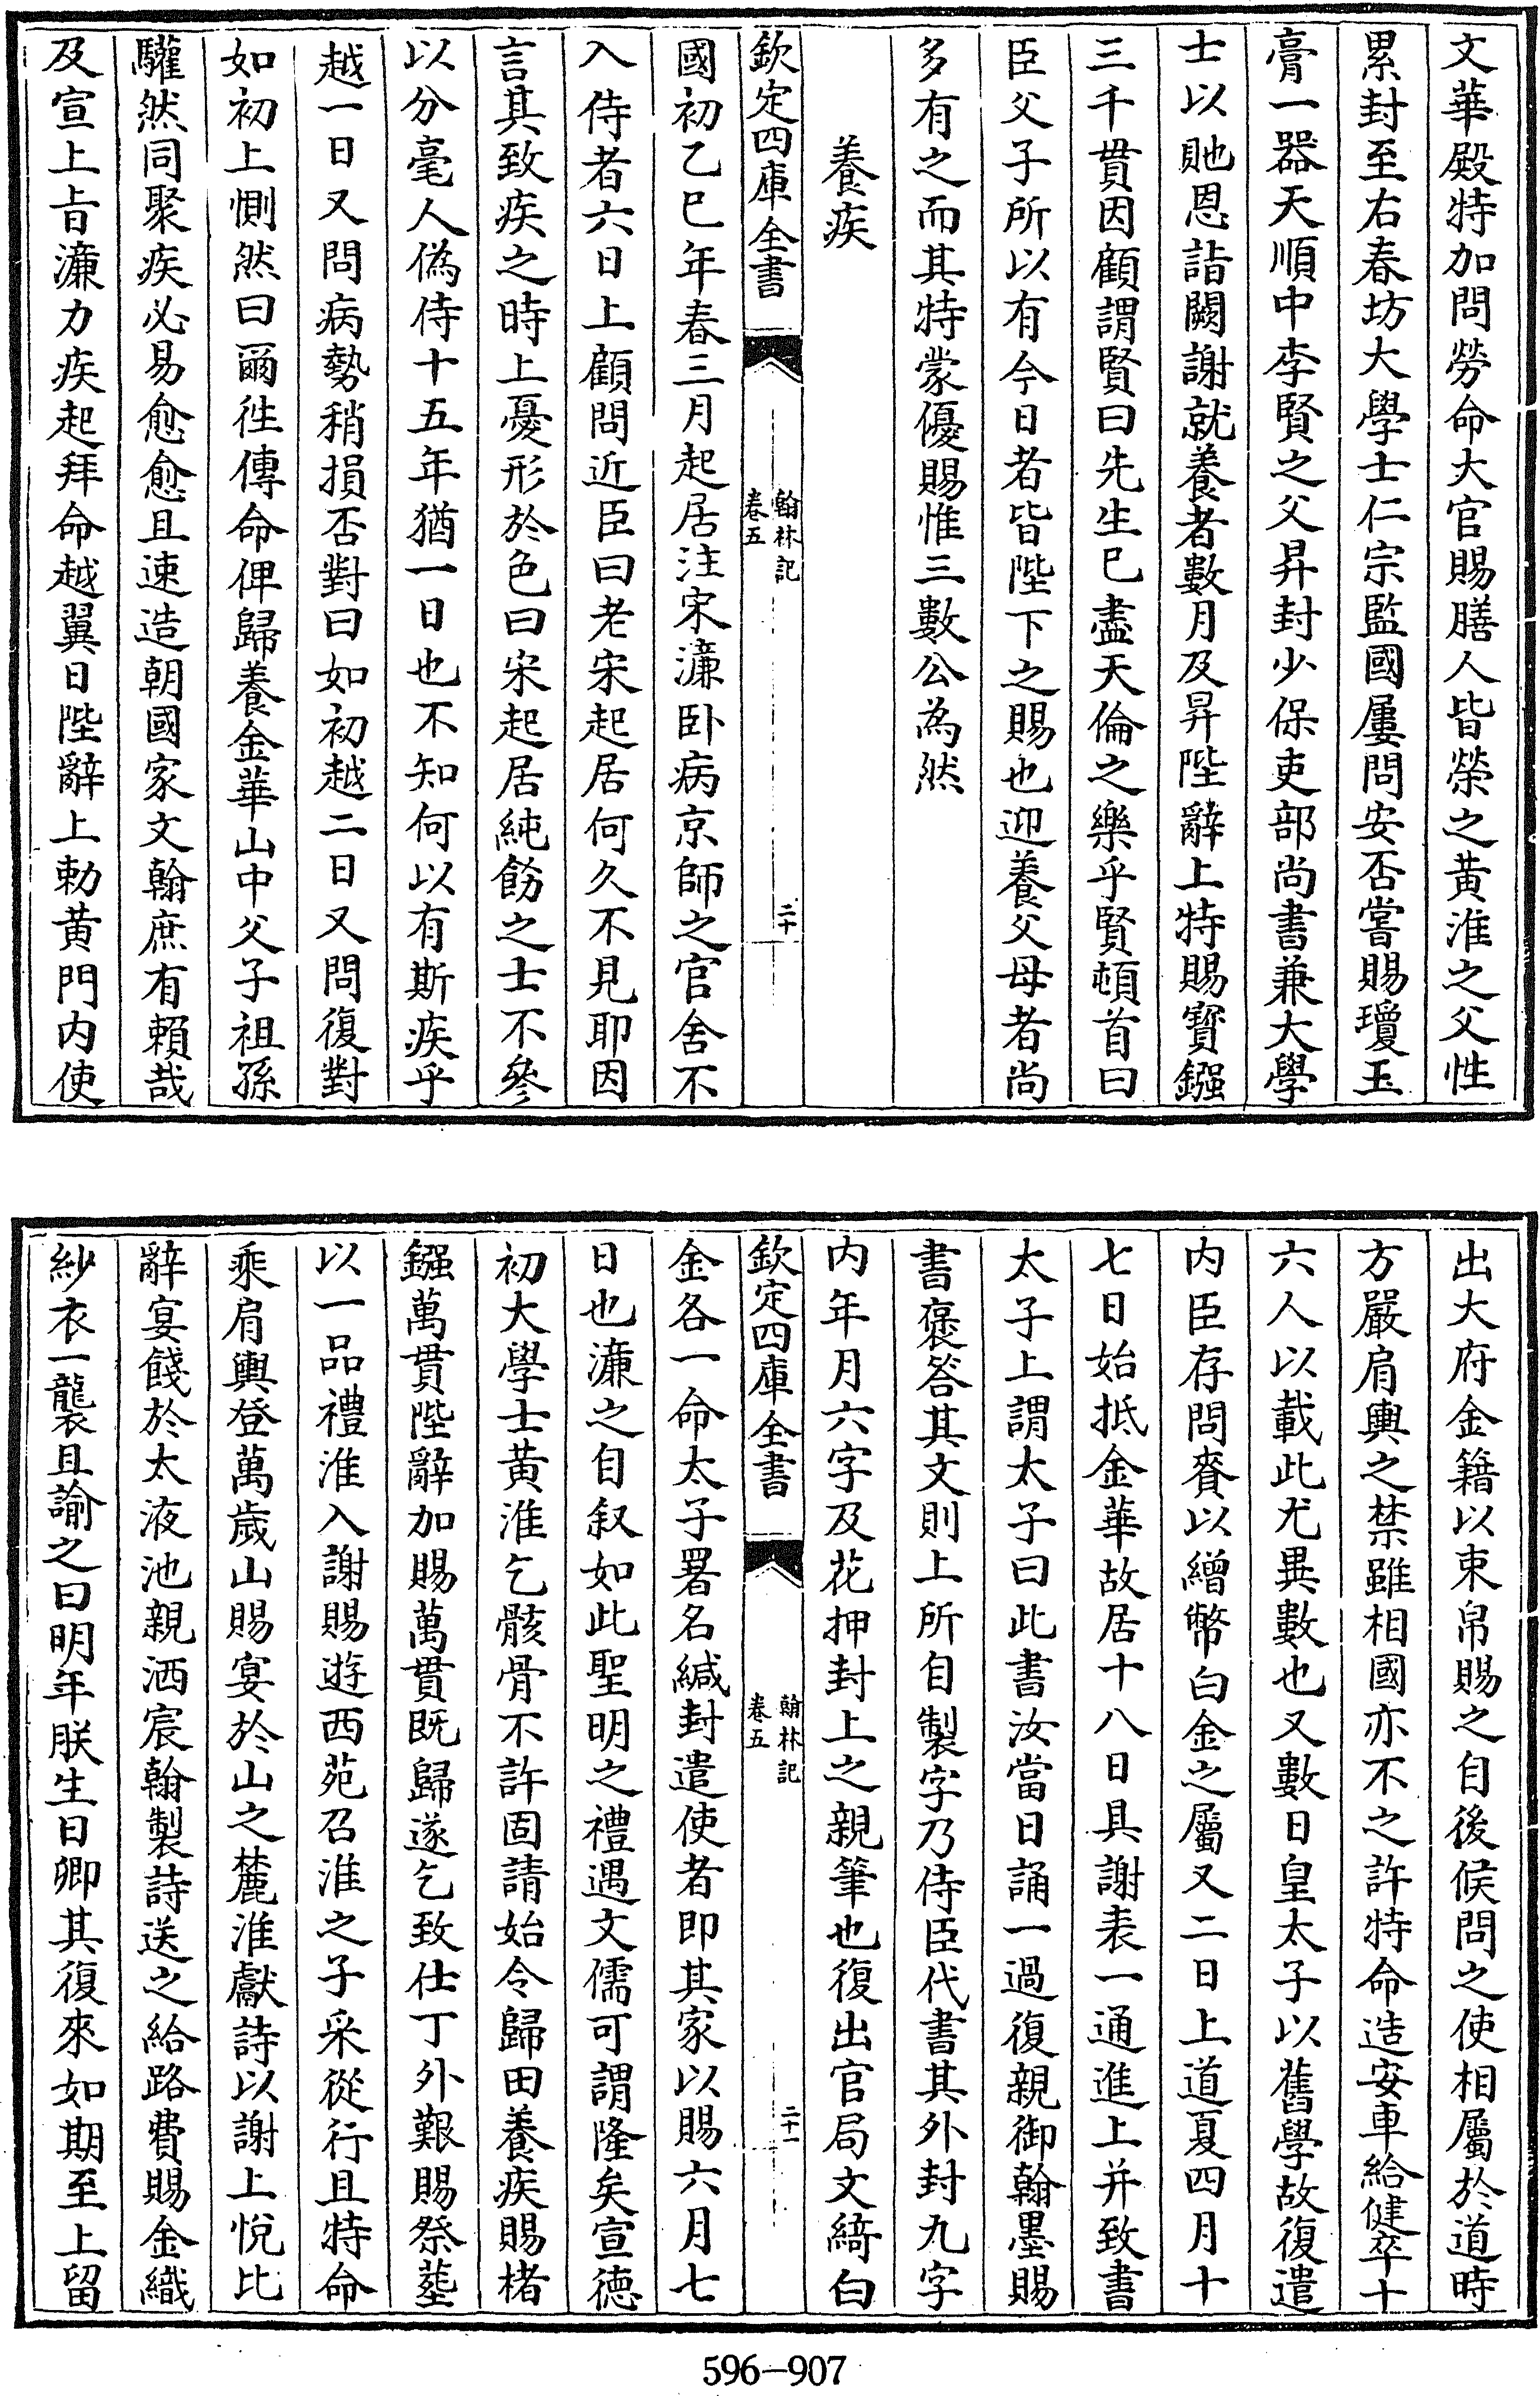 文華殿特加問勞命大官賜膳人皆榮之黄淮之父性
累封至右春坊大學士仁宗監國屢問安否嘗賜瓊玉
膏一器天順中李賢之父昇封少保吏部尚書兼大學
士以貤恩詣闕謝就養者數月及昇陛辭上特賜寳鏹
三千貫因顧謂賢曰先生已盡天倫之樂乎賢頓首曰
臣父子所以有今日者皆陛下之賜也迎養父母者尚
多有之而其特蒙優賜惟三數公為然
養疾
欽定四庫全書
翰林記
卷五
二十
國初乙巳年春三月起居注宋濂卧病京師之官舍不
入侍者六日上顧問近臣曰老宋起居何久不見耶因
言其致疾之時上憂形於色曰宋起居純飭之士不參
以分毫人僞侍十五年猶一日也不知何以有斯疾乎
越一日又問病勢稍損否對曰如初越二日又問復對
如初上惻然曰爾徃傳命俾歸養金華山中父子祖孫
驩然同聚疾必易愈愈且速造朝國家文翰庶有賴哉
及宣上旨濂力疾起拜命越翼日陛辭上勅黄門内使
出大府金籍以束帛賜之自後候問之使相屬於道時
方嚴肩輿之禁雖相國亦不之許特命造安車給健卒十
六人以載此尤異數也又數日皇太子以舊學故復遣
内臣存問賚以繒幣白金之屬又二日上道夏四月十
七日始抵金華故居十八日具謝表一通進上并致書
太子上謂太子曰此書汝當日誦一過復親御翰墨賜
書褒答其文則上所自製字乃侍臣代書其外封九字
内年月六字及花押封上之親筆也復出官局文綺白
欽定四庫全書
翰林記
卷五
二十一
金各一命太子署名緘封遣使者即其家以賜六月七
日也濂之自叙如此聖明之禮遇文儒可謂隆矣宣德
初大學士黄淮乞骸骨不許固請始令歸田養疾賜楮
鏹萬貫陛辭加賜萬貫既歸遂乞致仕丁外艱賜祭塟
以一品禮淮入謝賜遊西苑召淮之子采從行且特命
乘肩輿登萬歲山賜宴於山之麓淮獻詩以謝上悅比
辭宴餞於太液池親洒宸翰製詩送之給路費賜金織
紗衣一襲且諭之曰明年朕生日卿其復來如期至上留
596-907